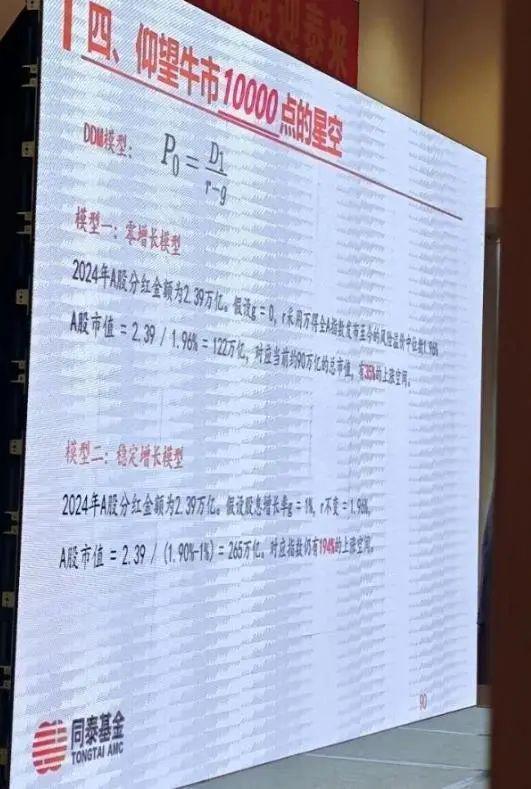 四、仰望牛市10000点的星空
DDM模型： P₀ = D₁ / r-g
模型一：零增长模型
2024年A股分红金额为2.39万亿。假设g = 0，r采用万得全A指数发布至今的风险溢价中位数1.96%
A股市值 = 2.39 / 1.96% = 122万亿，对应当前约90万亿的总市值，有35%的上涨空间。
模型二：稳定增长模型
2024年A股分红金额为2.39万亿。假设股息增长率g = 1%，r不变 = 1.96%，
A股市值 = 2.39 / (1.90%-1%) = 265万亿。对应指数仍有194%的上涨空间。
同泰基金
TONGTAI AMC
90